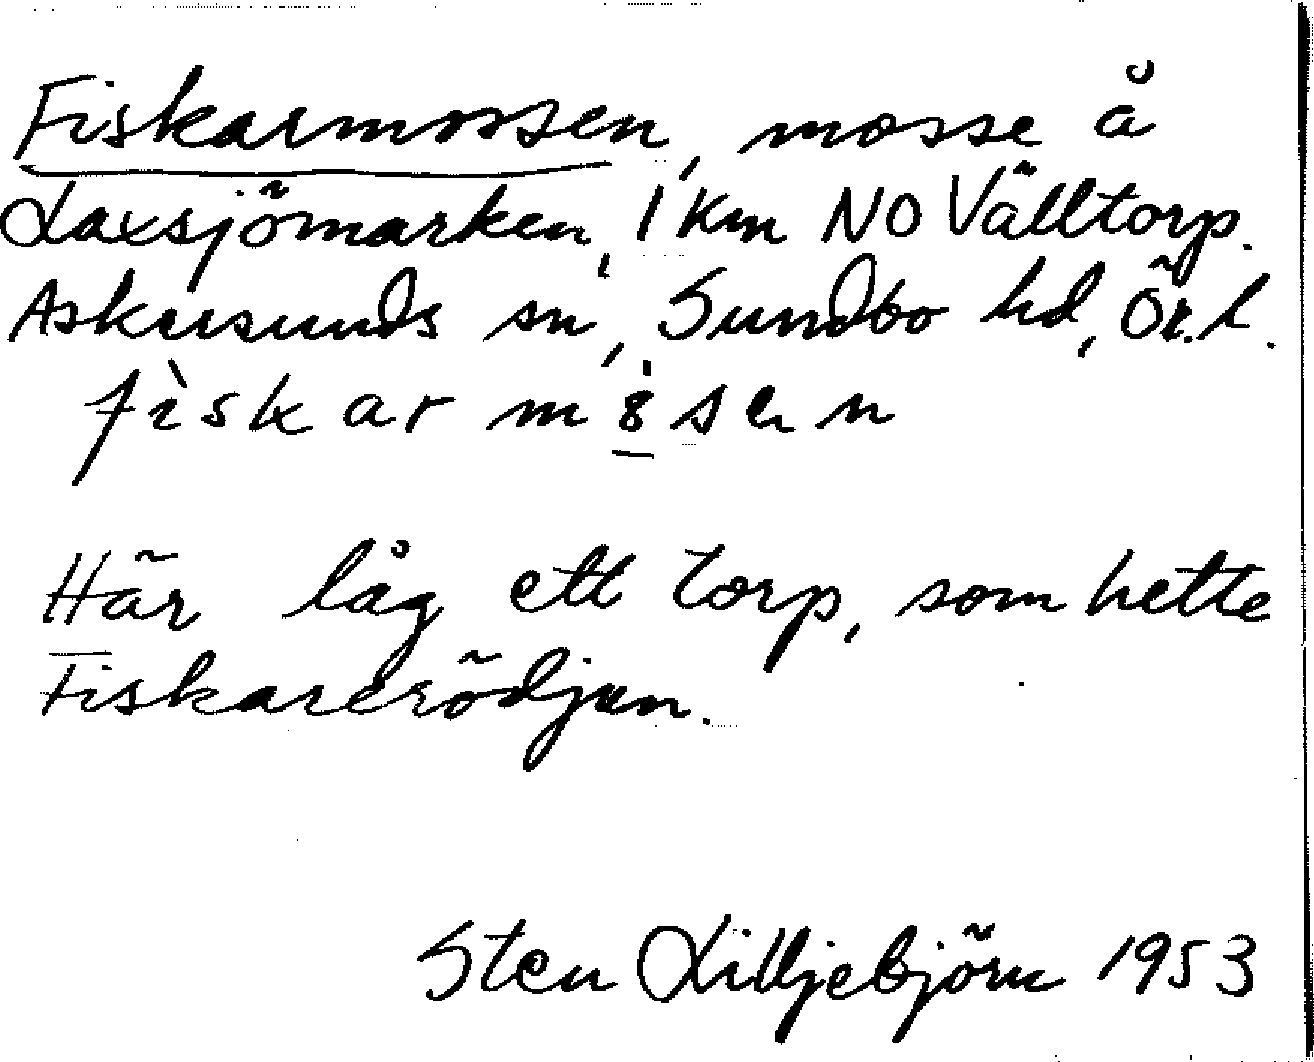 Fiskarmossen, mosse å
Laxsjömarken, 1 km NO Välltorp.
Askersunds sn, Sundbo hd, Ör.l.
fìskarm8̠sen
Här låg ett torp, som hette
Fiskareródjan.
Sten Lilljebjörn 1953